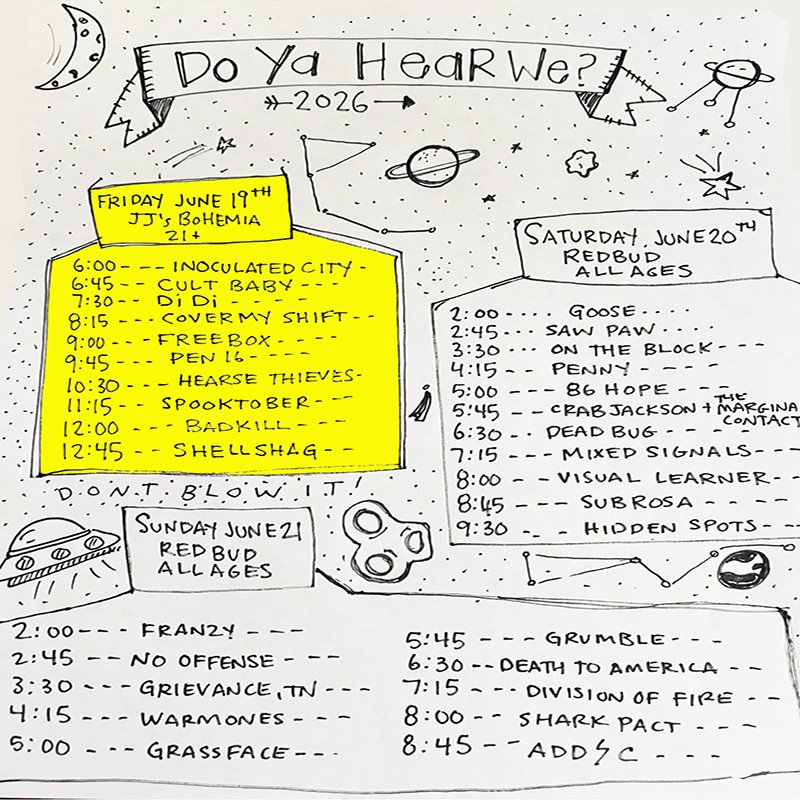 Do Ya Hear We?
2026
FRIDAY JUNE 19TH
JJ's BOHEMIA
21+
6:00 - - - INOCULATED CITY -
6:45 - - CULT BABY - - -
7:30 - - Di Di - - - -
8:15 - - - COVER MY SHIFT - -
9:00 - - - FREEBOX - - - -
9:45 - - - PEN 16 - - - -
10:30 - - - HEARSE THIEVES -
11:15 - - SPOOKTOBER - - -
12:00 - - - BADKILL - - -
12:45 - - - SHELLSHAG - -
SATURDAY, JUNE 20TH
REDBUD
ALL AGES
2:00 .... GOOSE ....
2:45 ... SAW PAW ....
3:30 ... ON THE BLOCK - - -
4:15 - - PENNY - - - -
5:00 - - - 86 HOPE - - -
5:45 - - CRAB JACKSON + THE MARGINA
CONTACT
6:30 - . DEAD BUG - - -
7:15 - - - MIXED SIGNALS - -
8:00 - - - VISUAL LEARNER - - -
8:45 - - - SUBROSA - - - -
9:30 - - - HIDDEN SPOTS - - -
DON'T BLOW IT!
SUNDAY JUNE 21
RED BUD
ALL AGES
2:00 - - - FRANZY - - -
2:45 - - NO OFFENSE - - -
3:30 - - - GRIEVANCE, TN - - -
4:15 - - - WARMONES - - -
5:00 - - - GRASSFACE - - -
5:45 - - - GRUMBLE - - -
6:30 - - DEATH TO AMERICA - -
7:15 - - - DIVISION OF FIRE - -
8:00 - - SHARK PACT - - -
8:45 - - ADD⚡C - - -